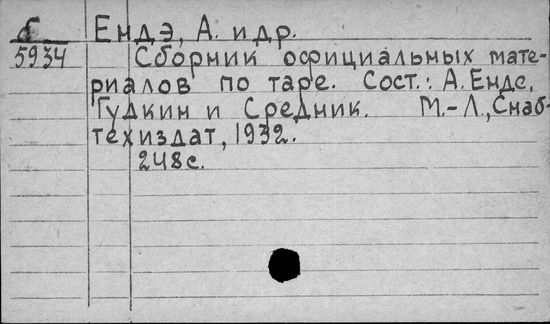 Б Ендэ, А. и др.
5934 Сборник официальных мате-
риалов по таре. Сост.: А. Енде,
Гудкин и Средник. М.-Л., Снаб-
техиздат, 1932.
248с.